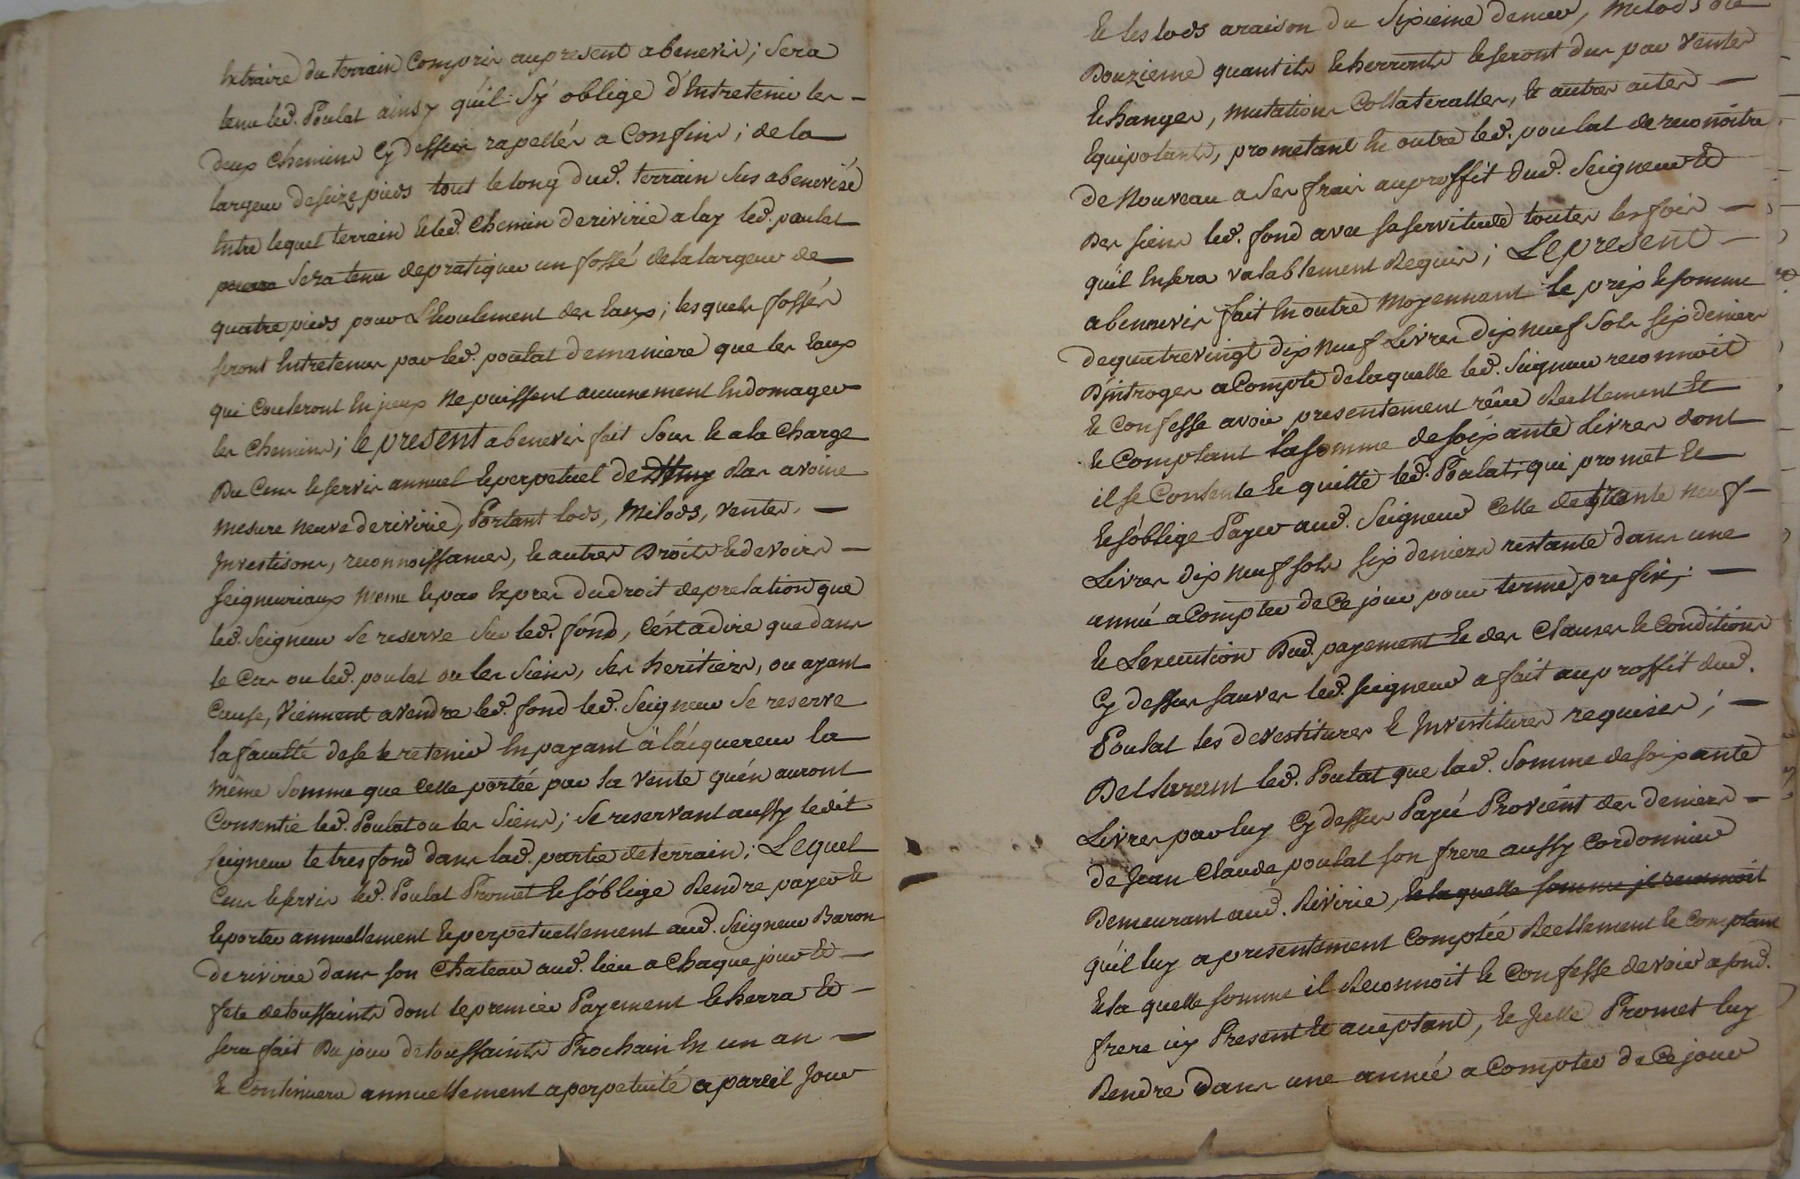 Extraire du terrain Compris au present abenevis; sera
tenu led. Poulat ainsy quil s'y oblige d'Entretenir les
deux chemins cy dessus rapellés a Confins; de la
largeur de seize pieds tout le long dud. terrain sus abenevisé
Entre lequel terrain & led. Chemin de rivirie a luy led. poulat
sera tenu de pratiquer un fossé de la largeur de
quatre pieds pour L'Ecoulement des Eaux; lesquels fossés
seront Entretenus par led. poulat de maniere que les Eaux
qui Couleront En jceux ne puissent aucunement Endomager
les Chemins; le present abenevis fait sous & a la Charge
Du Cens & servis annuel & perpetuel de Ras avoine
mesure neuve de rivirie, Portant lods, Milods, ventes,
Jnvestisons, reconnoissances, & autres Droits & devoirs
seigneuriaux meme & par Exprès du droit de prelation que
led. Seigneur se reserve sur led. fond, c'est a dire que dans
le Cas ou led. poulat ou les siens, ses heritiers, ou ayant
Cause, viennent a vendre led. fond led. Seigneur se reserve
la faculté de se le retenir En payant à l'acquereur la
même somme que Celle portée par la vente qu'en auront
Consentie led. Poulat ou les siens; se reservant aussy ledit
seigneur le tres fond dans lad. partie de terrain; Lequel
Cens & servis led. Poulat Promet & s'oblige Rendre payer &
& porter annuellement & perpetuellement aud. Seigneur Baron
de rivirie dans son Chateau aud. lieu a Chaque jour &
fete de toussaints dont le premier Payement Echerra &
sera fait Du jour de toussaints Prochain En un an
& Continuera annuellement a perpetuité a pareil Jour
& les lods a raison du sixieme denier, milods
Douzieme quant ils Echerront & seront dus par ventes
Echanges, mutations Collateralles, & autres actes
Equipolants, prometant En outre led. poulat de reconoitre
de Nouveau a ses frais au proffit dud. Seigneur &
Des siens led. fond avec sa servitude toutes les fois
qu'il En sera valablement Requis; Le present
abennevis fait En outre moyennant le prix & somme
de quatre vingt dix Neuf Livres dix neuf sols six deniers
D'introges a Compte de laquelle led. Seigneur reconnoit
& Confesse avoir presentement reçu Reellement &
& Comptant la somme de soixante Livres dont
il se Contente & quitte led. Poulat, qui promet &
& s'oblige Payer aud. Seigneur Celle de trente neuf
Livres dix neuf sols six deniers restante dans une
année a Compter de Ce jour pour terme prefix;
& L'execution Dud. payement & des Clauses & Conditions
Cy dessus sauves led. seigneur a fait au proffit dud.
Poulat les devestitures & Jnvestitures requises;
Declarant led. Poulat que lad. somme de soixante
Livres par luy Cy dessus Payée Provient des deniers
de Jean Claude poulat son frere aussy Cordonnier
Demeurant aud. Rivirie, & laquelle somme il reconnoit
qu'il luy a presentement Comptée Reellement & Comptant
& la quelle somme il Reconnoit & Confesse devoir a sond.
frere icy Present & acceptant, & Jcelle Promet luy
Rendre dans une année a Compter de Ce jour